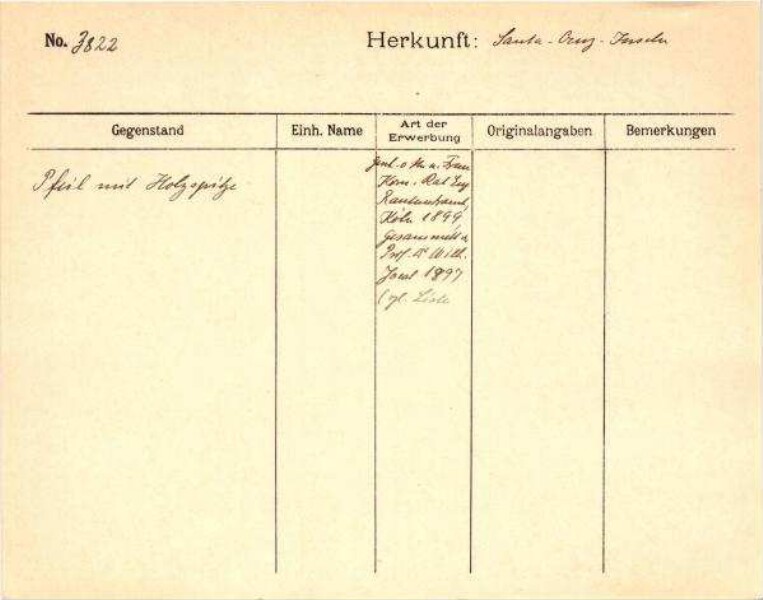 No. 3822
Herkunft: Santa-Cruz-Inseln
Gegenstand
Einh. Name
Art der Erwerbung
Originalangaben
Bemerkungen
Pfeil mit Holzspitze
Gesch. v. Hr. u. Frau
Kom. Rat Eug
Rautenstrauch,
Köln 1899
Gesammelt v.
Prof. Dr Wilh.
Joest 1897
(vgl. Liste